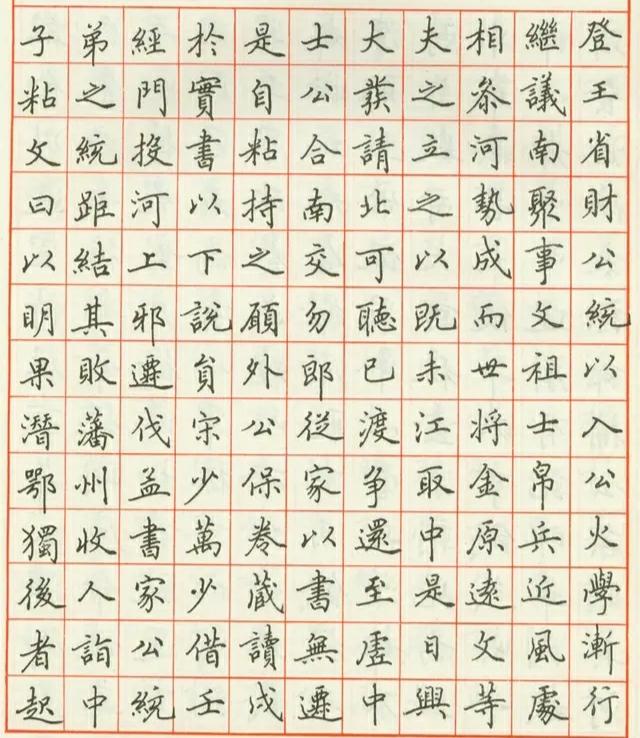 子弟經於是士大夫相繼登
粘之門實自公發之參議王
文統投書粘合請立河南省
曰距河以持南北之勢聚財
以結上下之交可以成事公
明其邪說願勿聽既而文統
果敗遷員外郎已未世祖以
潛藩伐宋公從渡江將士入
鄂州孟少保家爭取金帛公
獨收書萬卷以還中原兵火
後人家少藏書至是遠近學
者詣公借讀無虛日文風漸
起中統壬戌遷中興等處行